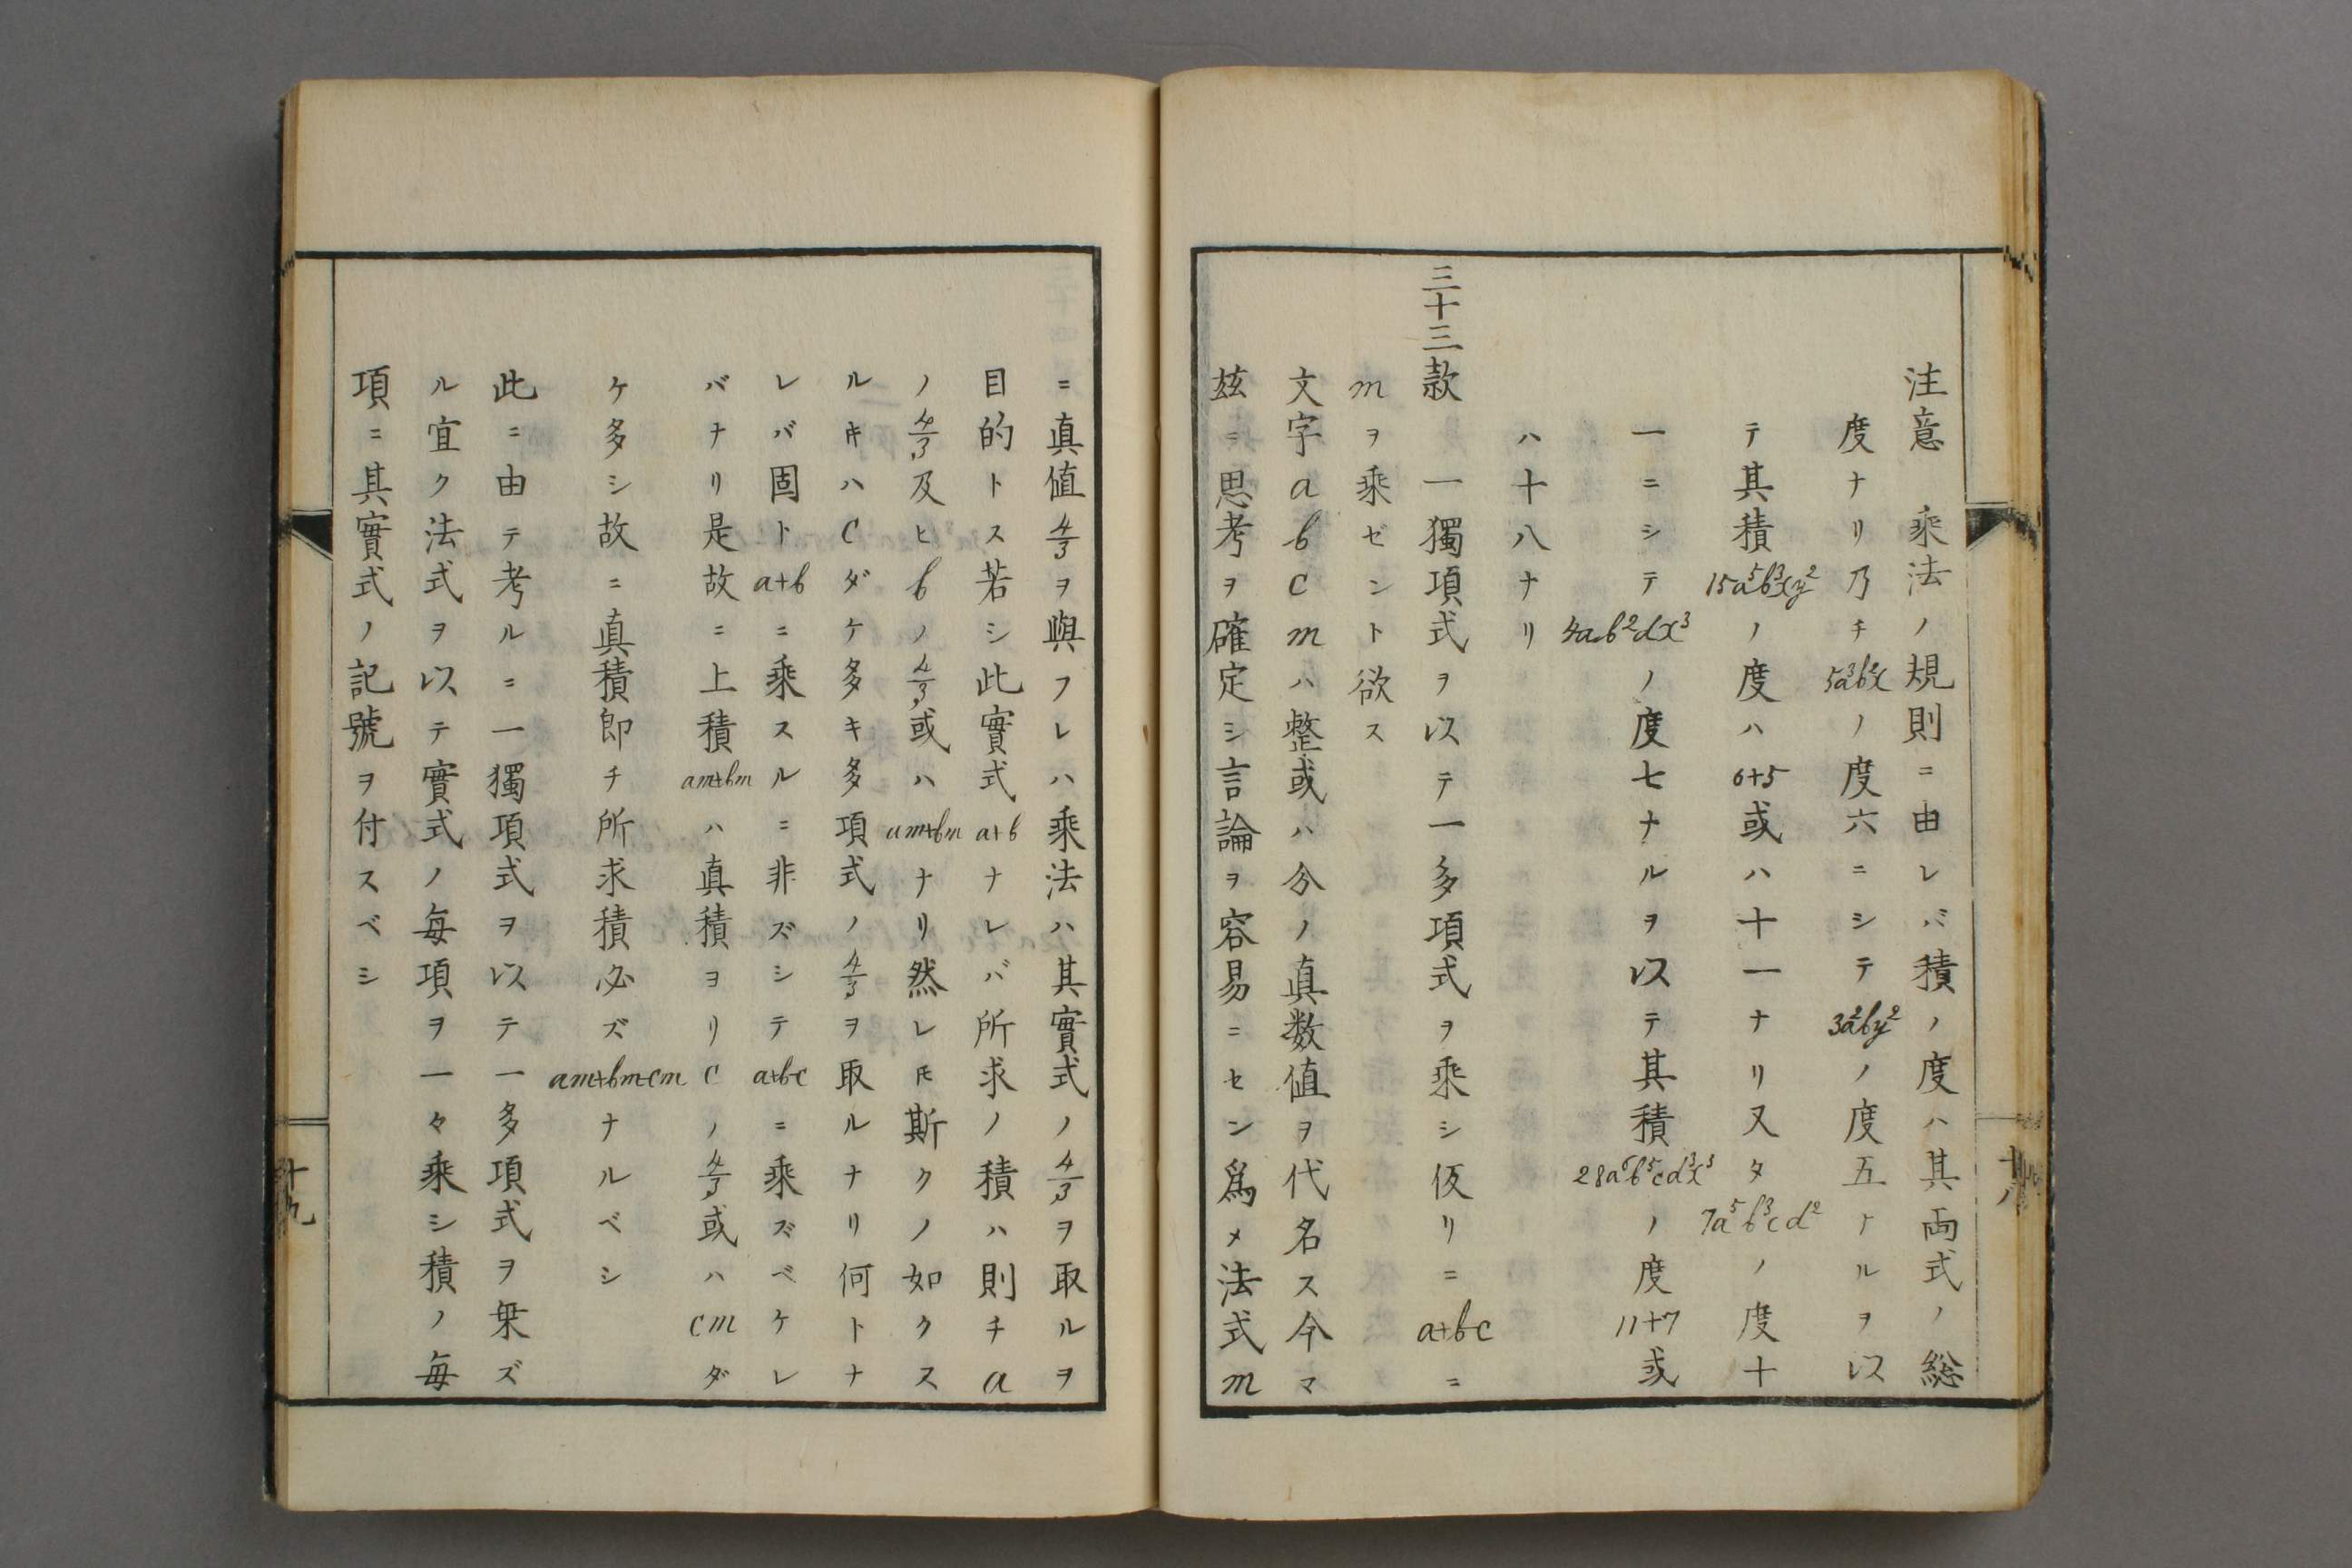 注意 乘法ノ規則ニ由レバ積ノ度ハ其両式ノ総
度ナリ乃チ5a³b²xノ度六ニシテ3a²by²ノ度五ナルヲ以
テ其積15a⁵b³xy²ノ度ハ6+5或ハ十一ナリ又タ7a⁵b³cd²ノ度十
一ニシテ4ab²dx³ノ度七ナルヲ以テ其積28a⁶b⁵cd³x³ノ度11+7或
ハ十八ナリ
三十三款 一獨項式ヲ以テ一多項式ヲ乘シ仮リニa+b-cニ
mヲ乘ゼント欲ス
文字abcmハ整或ハ分ノ真数値ヲ代名ス今マ
玆ニ思考ヲ確定シ言論ヲ容易ニセン為メ法式m
十八
ニ真値4/3ヲ與フレハ乘法ハ其實式ノ4/3ヲ取ルヲ
目的トス若シ此實式a+bナレバ所求ノ積ハ則チa
ノ4/3及ヒbノ4/3或ハam+bmナリ然レ𪜈斯クノ如クス
ルキハcダケ多キ多項式ノ4/3ヲ取ルナリ何トナ
レバ固トa+bニ乘スルニ非ズシテa+b-cニ乘ズベケレ
バナリ是故ニ上積am+bmハ真積ヨリcノ4/3或ハcmダ
ケ多シ故ニ真積即チ所求積必ズam+bm-cmナルベシ
此ニ由テ考ルニ一獨項式ヲ以テ一多項式ヲ乗ズ
ル宜ク法式ヲ以テ實式ノ毎項ヲ一々乘シ積ノ毎
項ニ其實式ノ記號ヲ付スベシ
十九